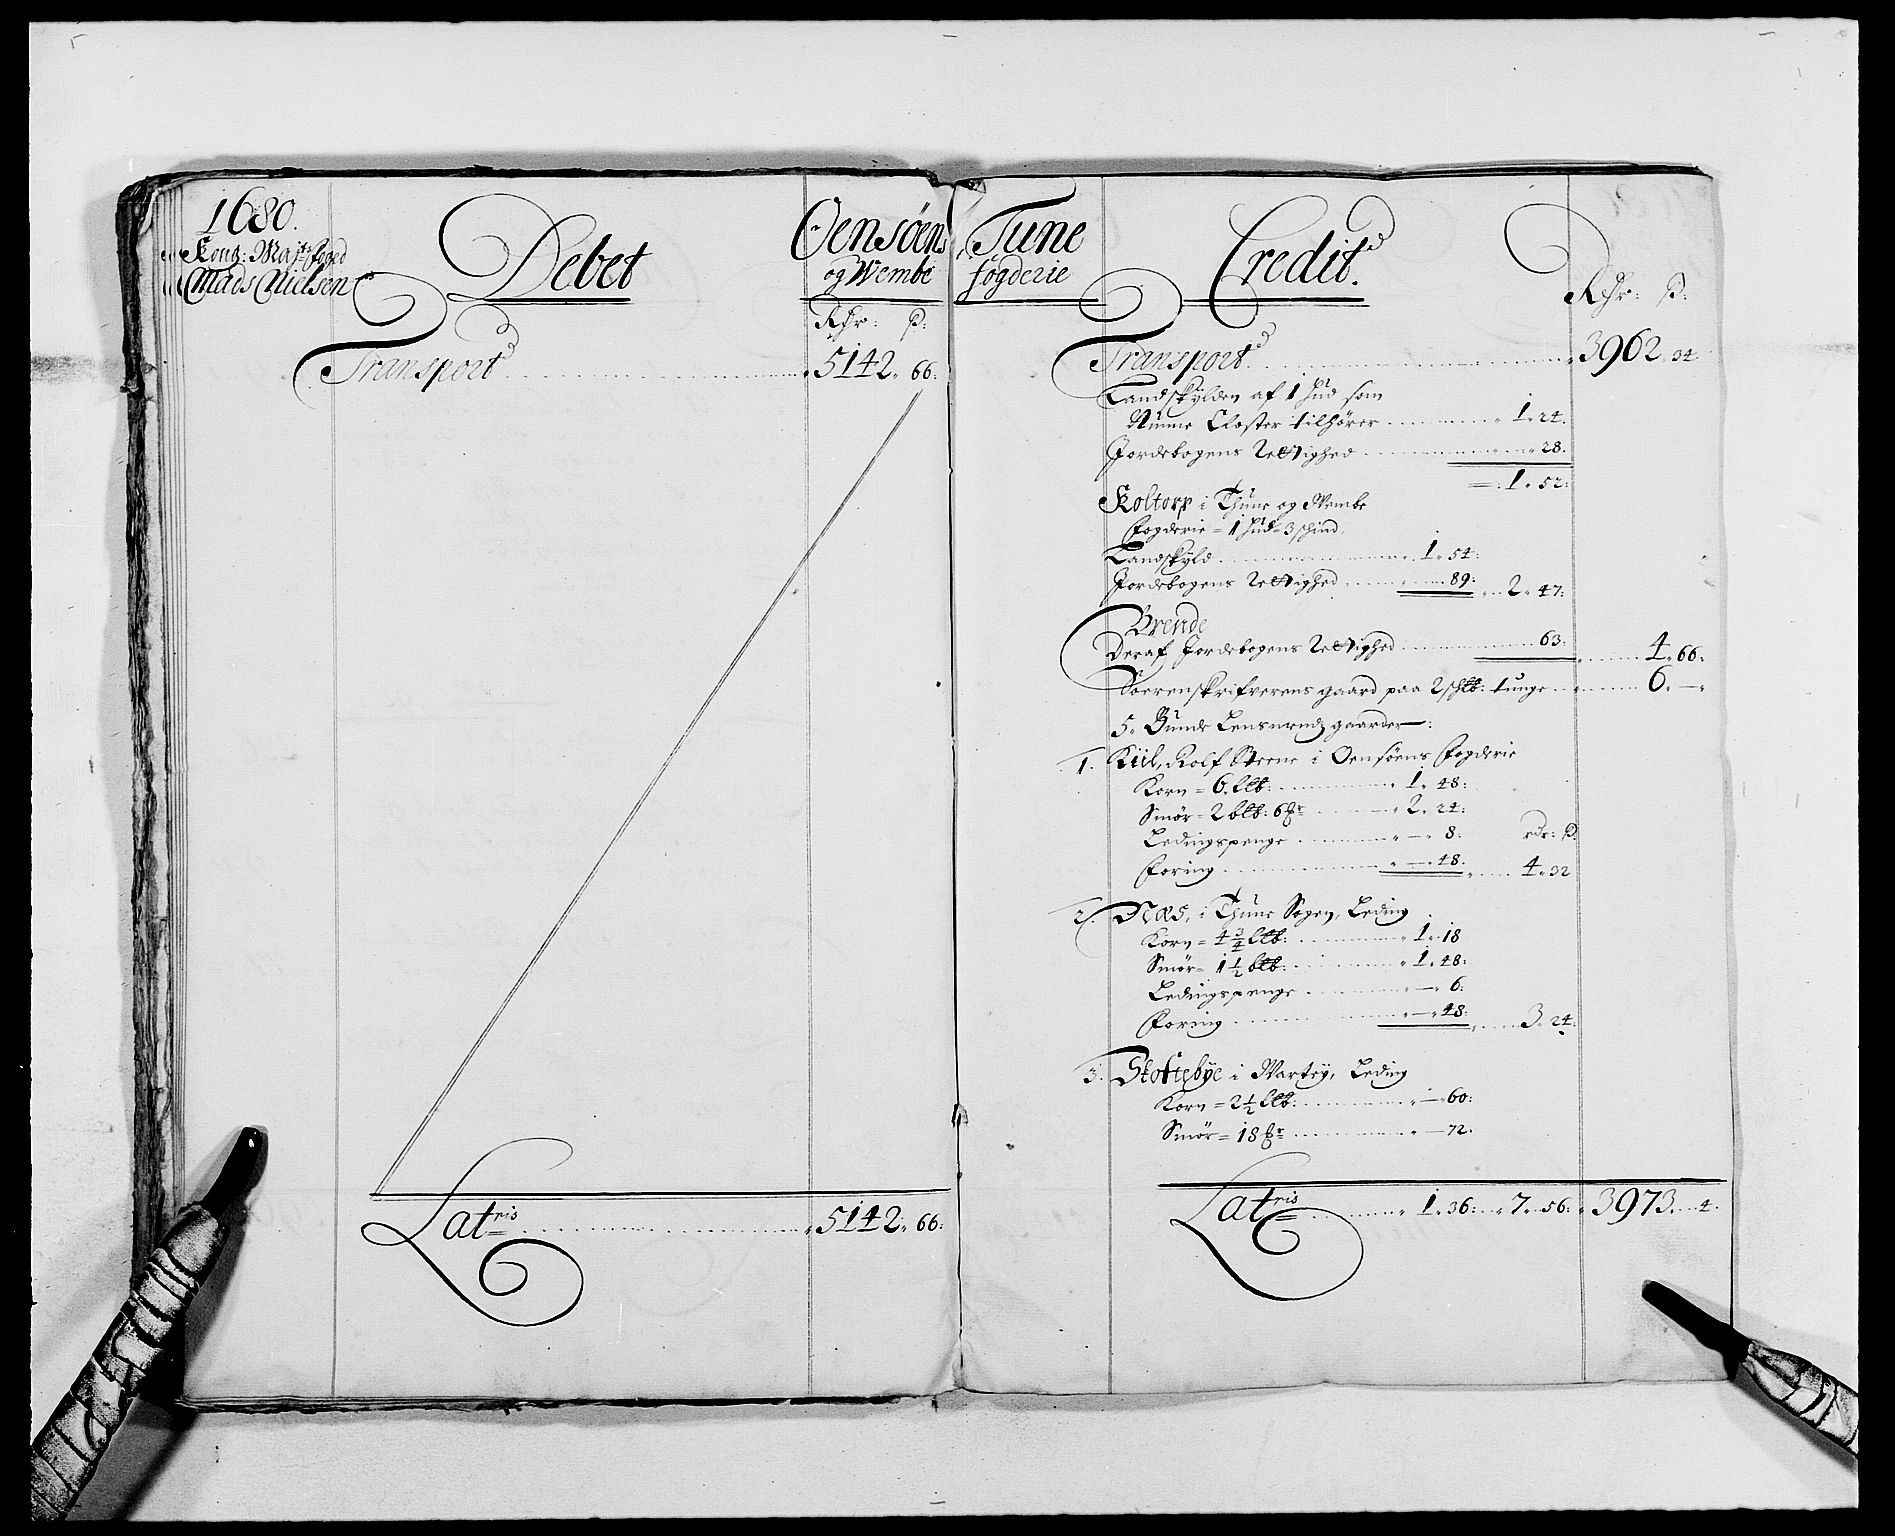 1680.
Kong: Maj:ts foged
Mads Nielsen
Debet
Oensøens
og Wembe
Rdr: ß:
Transport 5142 " 66:
Lat ris 5142 " 66:
Tune
fogderie
Credit.
Rdr: ß:
Transport 3962 " 34
Landskylden af 1 Hud som
Nunne Closter tilhører 1 " 24.
Jordebogens Rettighed 28.
1 " 52:
Skoltorp i Thune og Wembe
Fogderie = 1 Hud = 3 schind.
Landskyld 1 " 54:
Jordebogens Rettighed 89: 2 " 47:
Brende
Deraf Jordebogens Rettighed 63: 4 " 66:
Soerenskrifverens gaard paa 2 schlb: tunge 6 " — "
5. Bunde Lensmends gaarder:
1. Kiil, Rolf Steene i Oensøens Fogderie
Korn = 6 llb: 1 " 48:
Smør = 2 blb: 6 Mr 2 " 24:
Ledingspenge " — " 8: rdr: ß:
Foring " — " 48. 4 " 32
2. Næs, i Thune Sogen, Leding
Korn = 4 3/4 llb: 1 " 18
Smør = 1 1/2 blb: 1 " 48:
Ledingspenge " — " 6:
Foring " — " 48: 3 " 24:
3. Stottebye i Warteig, Leding
Korn = 2 1/2 llb: " — 60:
Smør = 18 Mr " — 72.
Lat ris 1 " 36: 7 " 56: 3973 " 4.